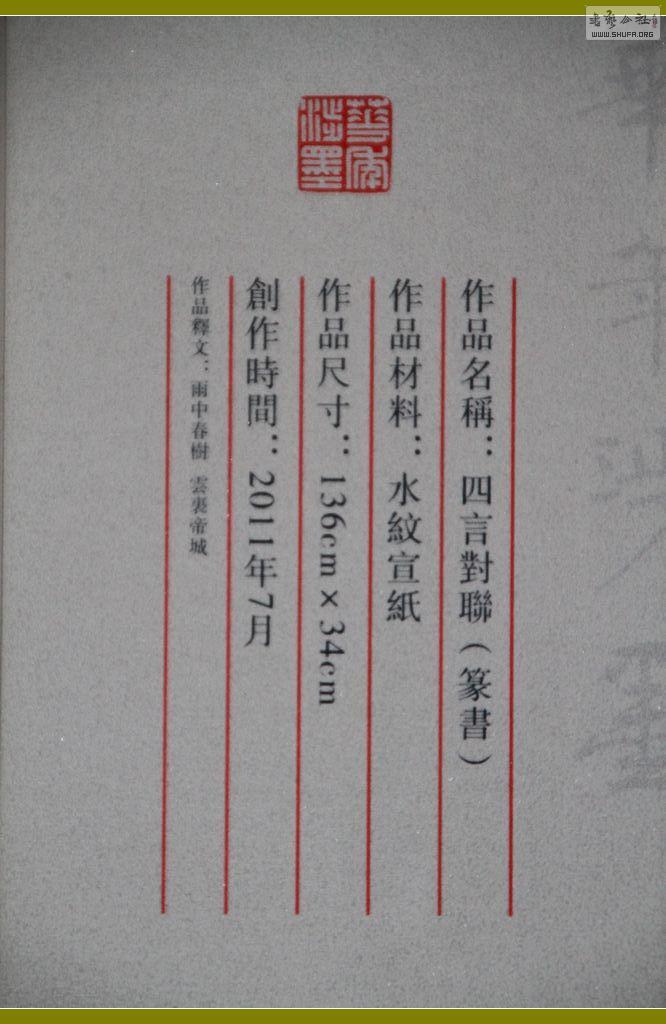 作品名稱：四言對聯（篆書）
作品材料：水紋宣紙
作品尺寸：136cm×34cm
創作時間：2011年7月
作品釋文：雨中春樹 雲裏帝城
華年
涉墨
WWW.SHUFA.ORG